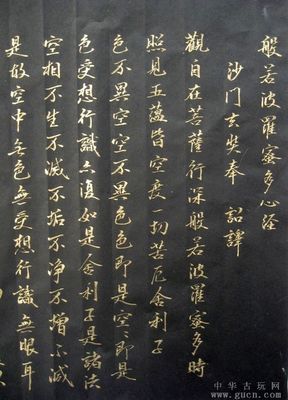 般若波羅蜜多心経
沙门玄奘奉 詔譯
觀自在菩薩行深般若波羅蜜多時
照見五蘊皆空度一切苦厄舍利子
色不異空空不異色色即是空〻即是
色受想行識亦復如是舍利子是諸法
空相不生不滅不垢不净不增不減
是故空中无色無受想行識無眼耳
中华古玩网
www.gucn.com